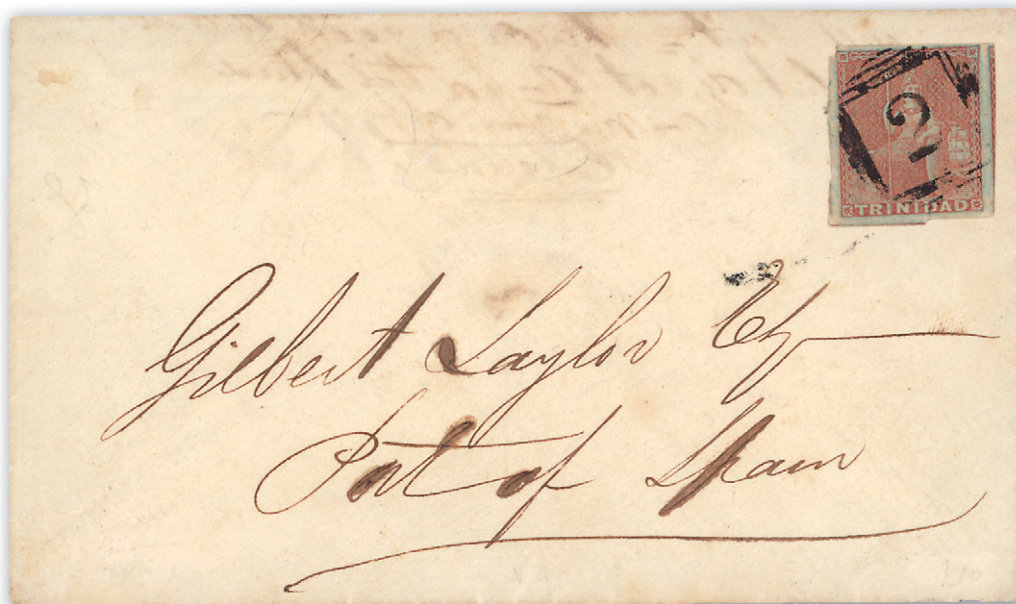 2
TRINIDAD
Gilbert Taylor Esq
Port of Spain